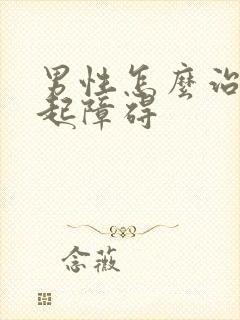 男性怎麼治
起障碍
念薇